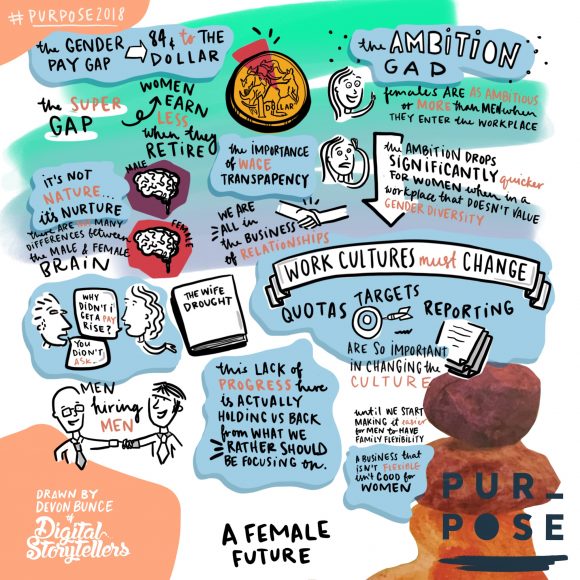 #PURPOSE2018
the GENDER → 84¢ to THE
PAY GAP DOLLAR
the SUPER
GAP
WOMEN
EARN
LESS
when they
RETIRE
DOLLAR
the AMBITION
GAD
females ARE AS AMBITIOUS
or MORE than MEN when
THEY ENTER the WORKPLACE
the AMBITION DROPS
SIGNIFICANTLY quicker
FOR WOMEN when in a
workplace that DOESN'T VALUE
GENDER DIVERSITY
it's NOT
NATURE...
it's NURTURE
MALE
the IMPORTANCE
of WAGE
TRANSPAPENCY
there ARE MANY
DIFFERENCES between
the MALE & FEMALE
BRAIN
FEMALE
WE ARE
ALL in
the BUSINESS
of RELATIONSHIPS
WORK CULTURES must CHANGE
QUOTAS TARGETS REPORTING
ARE SO IMPORTANT
IN CHANGING the
CULTURE
WHY
DIDN'T I
GET A PAY
RISE?
YOU
DIDN'T
ASK...
THE WIFE
DROUGHT
MEN
hiring
MEN
this LACK of
PROGRESS here
is ACTUALLY
HOLDING US BACK
from WHAT WE
RATHER SHOULD
BE FOCUSING on.
until WE START
MAKING it easier
for MEN to HAVE
FAMILY FLEXIBILITY
A BUSINESS that
ISN'T FLEXIBLE
isn't GOOD for
WOMEN
PUR_
POSE
DRAWN BY
DEVON BUNCE
of
Digital
Storytellers
A FEMALE
FUTURE